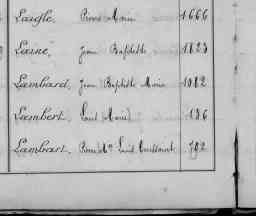 Laigle, Pierre Marie 1666
Lainé, Jean Baptiste 1823
Lambard, Jean Baptiste Marie 1082
Lambert, Paul Marie 136
Lambart, Pierre Mie Louis Toussaint 792